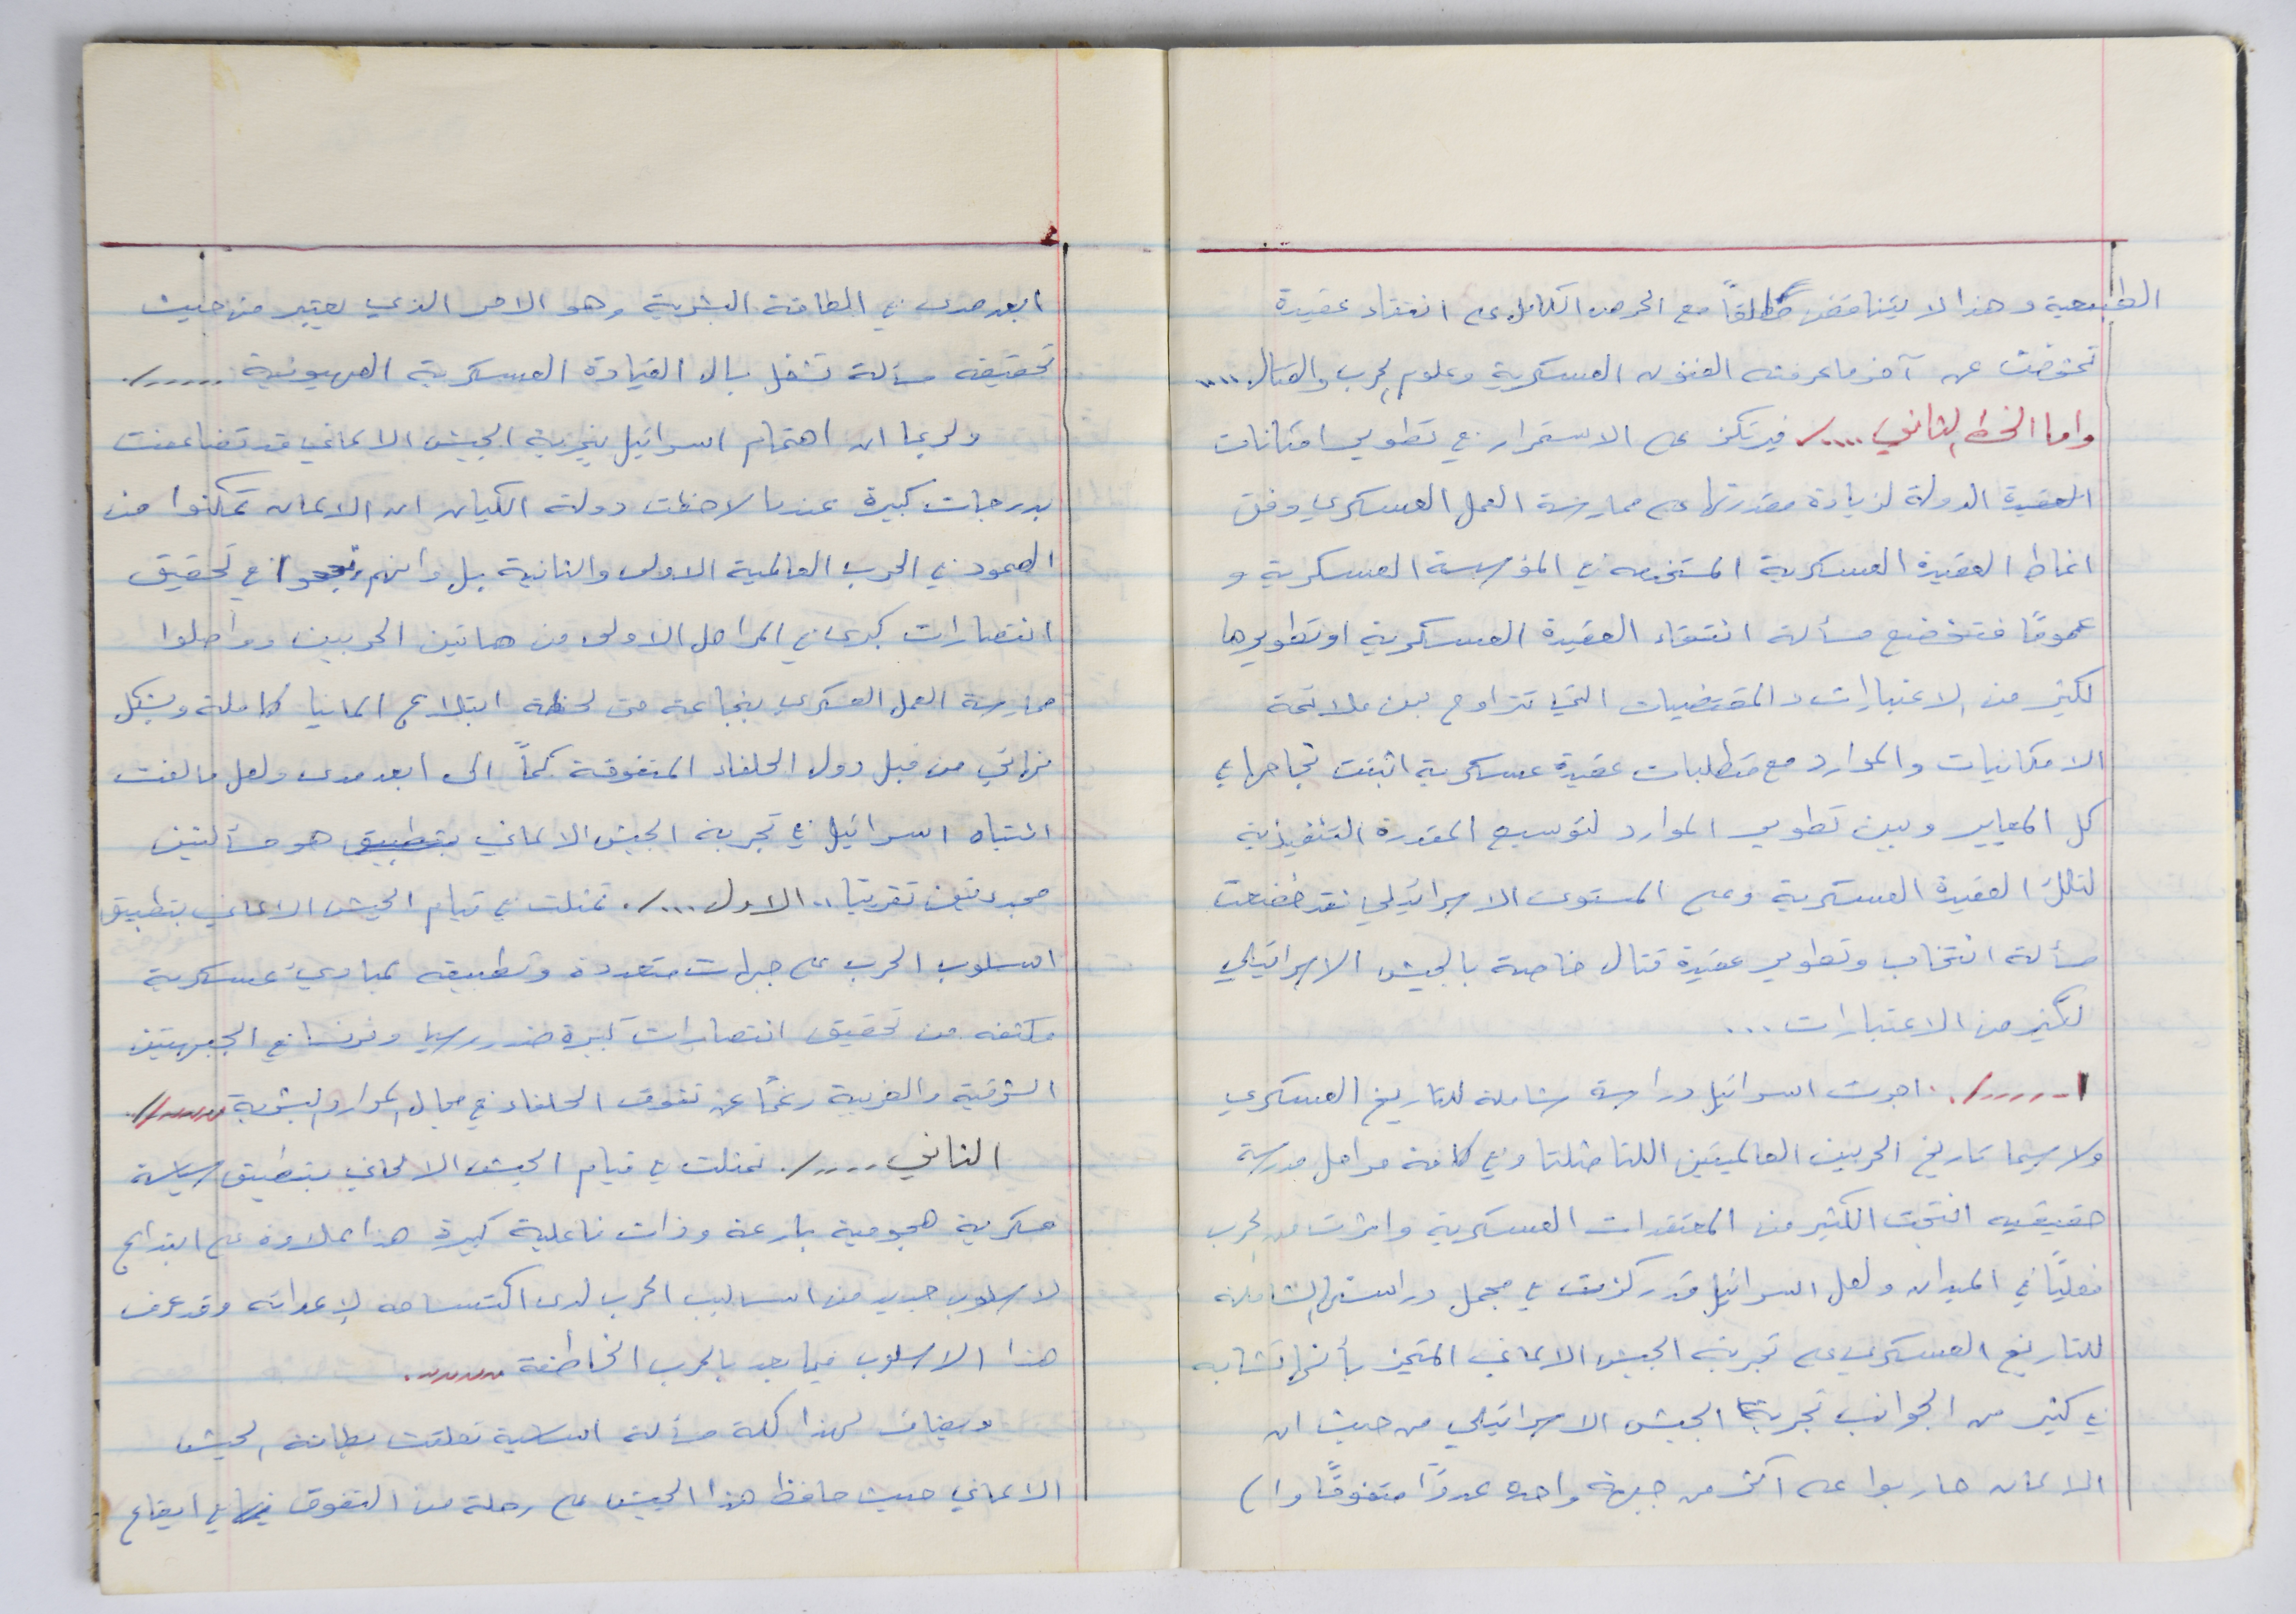 الطبيعية وهذا لا يتناقض مطلقاً مع الحرص الكامل على انتقاء عقيدة
تمخضت عن آخر ما عرفته الفنون العسكرية وعلوم الحرب والقتال .....
واما الخط الثاني ...../ فيرتكز على الاستمرار في تطوير امكانات
العقيدة الدولة لزيادة مقدرتها على ممارسة العمل العسكري وفق
انماط العقيدة العسكرية المستخدمه في المؤسسة العسكرية و
عموماً فتخضع مسألة انتقاء العقيدة العسكرية او تطويرها
لكثير من الاعتبارات والمقتضيات التي تتراوح بين ملائمة
الامكانيات والموارد مع متطلبات عقيدة عسكرية اثبتت نجاحها في
كل المعايير وبين تطوير الموارد لتوسيع المقدرة التنفيذية
لتلك العقيدة العسكرية وعلى المستوى الاسرائيلي فقد خضعت
مسألة انتخاب وتطوير عقيدة قتال خاصة بالجيش الاسرائيلي
لكثير من الاعتبارات ...
١ ....../. اجرت اسرائيل دراسة شاملة للتاريخ العسكري
ولا سيما تاريخ الحربين العالميتين اللتا مثلتا وفي كافة مراحل مدرسة
حقيقيه انتجت الكثير من المعتقدات العسكرية واثرت من الحرب
فعلياً في الميدان ولعل اسرائيل قد ركزت في مجمل دراستها الشاملة
للتاريخ العسكري على تجربة الجيش الالماني المتميز بأنها تشابه
في كثير من الجوانب تجربة الجيش الاسرائيلي من حيث ان
الالمان حاربوا على اكثر من جبهة واحده عدواً متفوقاً وا)
ابعد مدى في الطاقة البشرية وهو الامر الذي يعتبر من حيث
تحقيقه مسألة تشغل بال القيادة العسكرية الصهيونية ....../.
ولربما ان اهتمام اسرائيل بتجربة الجيش الالماني قد تضاعفت
بدرجات كبيرة عندما لاحظت دولة الكيان ان الالمان تمكنوا من
الصمود في الحرب العالمية الاولى والثانية بل وانهم نجحوا في تحقيق
انتصارات كبرى في المراحل الاولى من هاتين الحربين وواصلوا
ممارسة العمل العسكري بنجاعة حتى لحظة ابتلاع المانيا كاملة وبشكل
نهائي من قبل دول الحلفاء المتفوقة كماً الى ابعد مدى ولعل ما لفت
انتباه اسرائيل في تجربة الجيش الالماني بتطبيق هو مسألتين
محددتين تقريبا .. الاول ..../. تمثلت في قيام الجيش الالماني بتطبيق
اسلوب الحرب على جبهات متعددة وتطبيقه لمبادئ عسكرية
مكنته من تحقيق انتصارات كبيرة ضد روسيا وفرنسا في الجبهتين
الشرقية والغربية رغماً عن تفوق الحلفاء في مجال الموارد البشرية ....../.
الثاني ...../. تمثلت في قيام الجيش الالماني بتطبيق سياسة
عسكرية هجومية بارعة وذات فاعلية كبيرة هذا علاوة على ابتداع
لاسلوب جديد من اساليب الحرب لدى اكتساحه لإعدائه وقد عرف
هذا الاسلوب فيما بعد بالحرب الخاطفة .......
ويضاف لهذا كله مسألة اساسية تعلقت بطاقة الجيش
الالماني حيث حافظ هذا الجيش على رحلة من التفوق في ايقاع